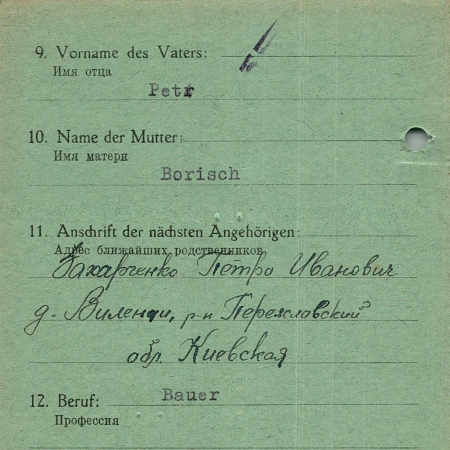 9. Vorname des Vaters:
Имя отца
Petr
10. Name der Mutter:
Имя матери
Borisch
11. Anschrift der nächsten Angehörigen:
Адрес ближайших родственников
Захарченко Петро Иванович
д. Виленци, р-н Переяславский
обл. Киевская
12. Beruf:
Bauer
Профессия